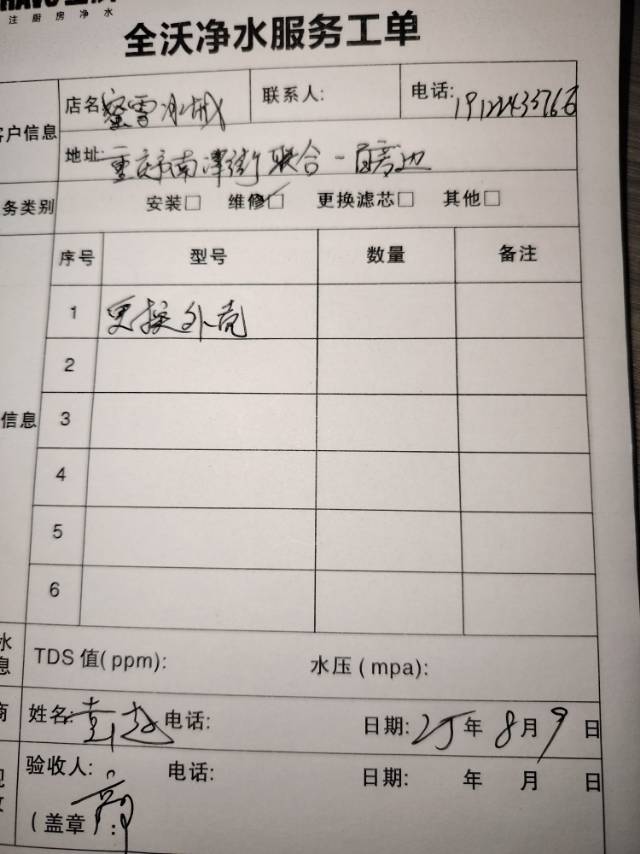 注厨房净水
全沃净水服务工单
客户信息 店名: 蜜雪冰城 联系人: 电话:
地址: 重庆市南津街联合一百旁边
务类别 安装□ 维修☑ 更换滤芯□ 其他□
序号 型号 数量 备注
1 更换外壳
2
信息 3
4
5
6
水 TDS 值(ppm): 水压(mpa):
息
商 姓名: 电话: 日期: 25年 8月 9日
验收人: 电话: 日期: 年 月 日
(盖章 :